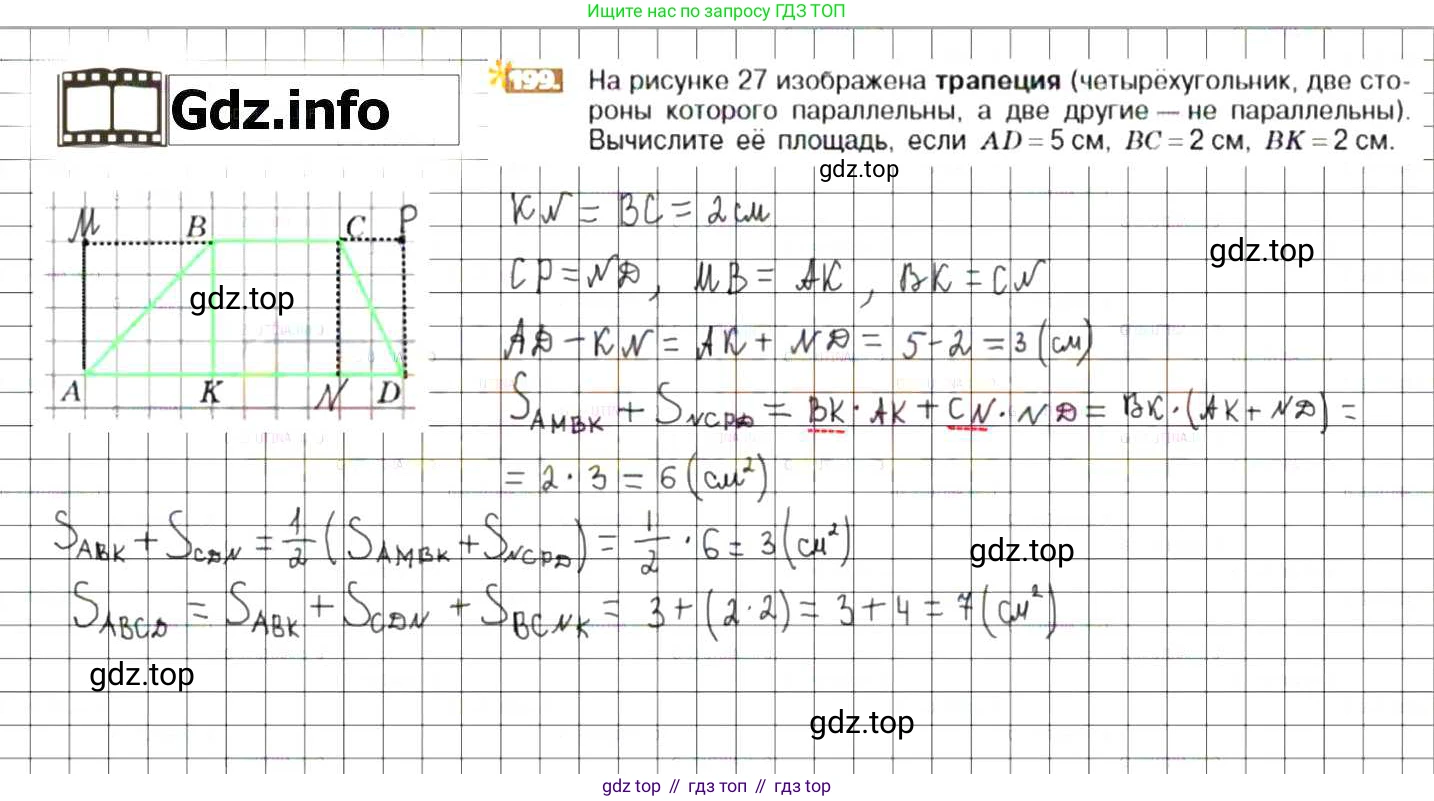 Ищите нас по запросу ГДЗ ТОП
Gdz.info
199. На рисунке 27 изображена трапеция (четырёхугольник, две сто-
роны которого параллельны, а две другие — не параллельны).
Вычислите её площадь, если AD = 5 см, BC = 2 см, BK = 2 см.
gdz.top
M B C P
A K N D
gdz.top
KN = BC = 2 см
gdz.top
CP = ND, MB = AK, BK = CN
AD - KN = AK + ND = 5 - 2 = 3 (см)
S_AMBK + S_NCPD = BK · AK + CN · ND = BK · (AK + ND) =
= 2 · 3 = 6 (см²)
S_ABK + S_CDN = 1/2 (S_AMBK + S_NCPD) = 1/2 · 6 = 3 (см²)
gdz.top
S_ABCD = S_ABK + S_CDN + S_BCNK = 3 + (2 · 2) = 3 + 4 = 7 (см²)
gdz.top
gdz.top
gdz top // гдз топ // гдз top